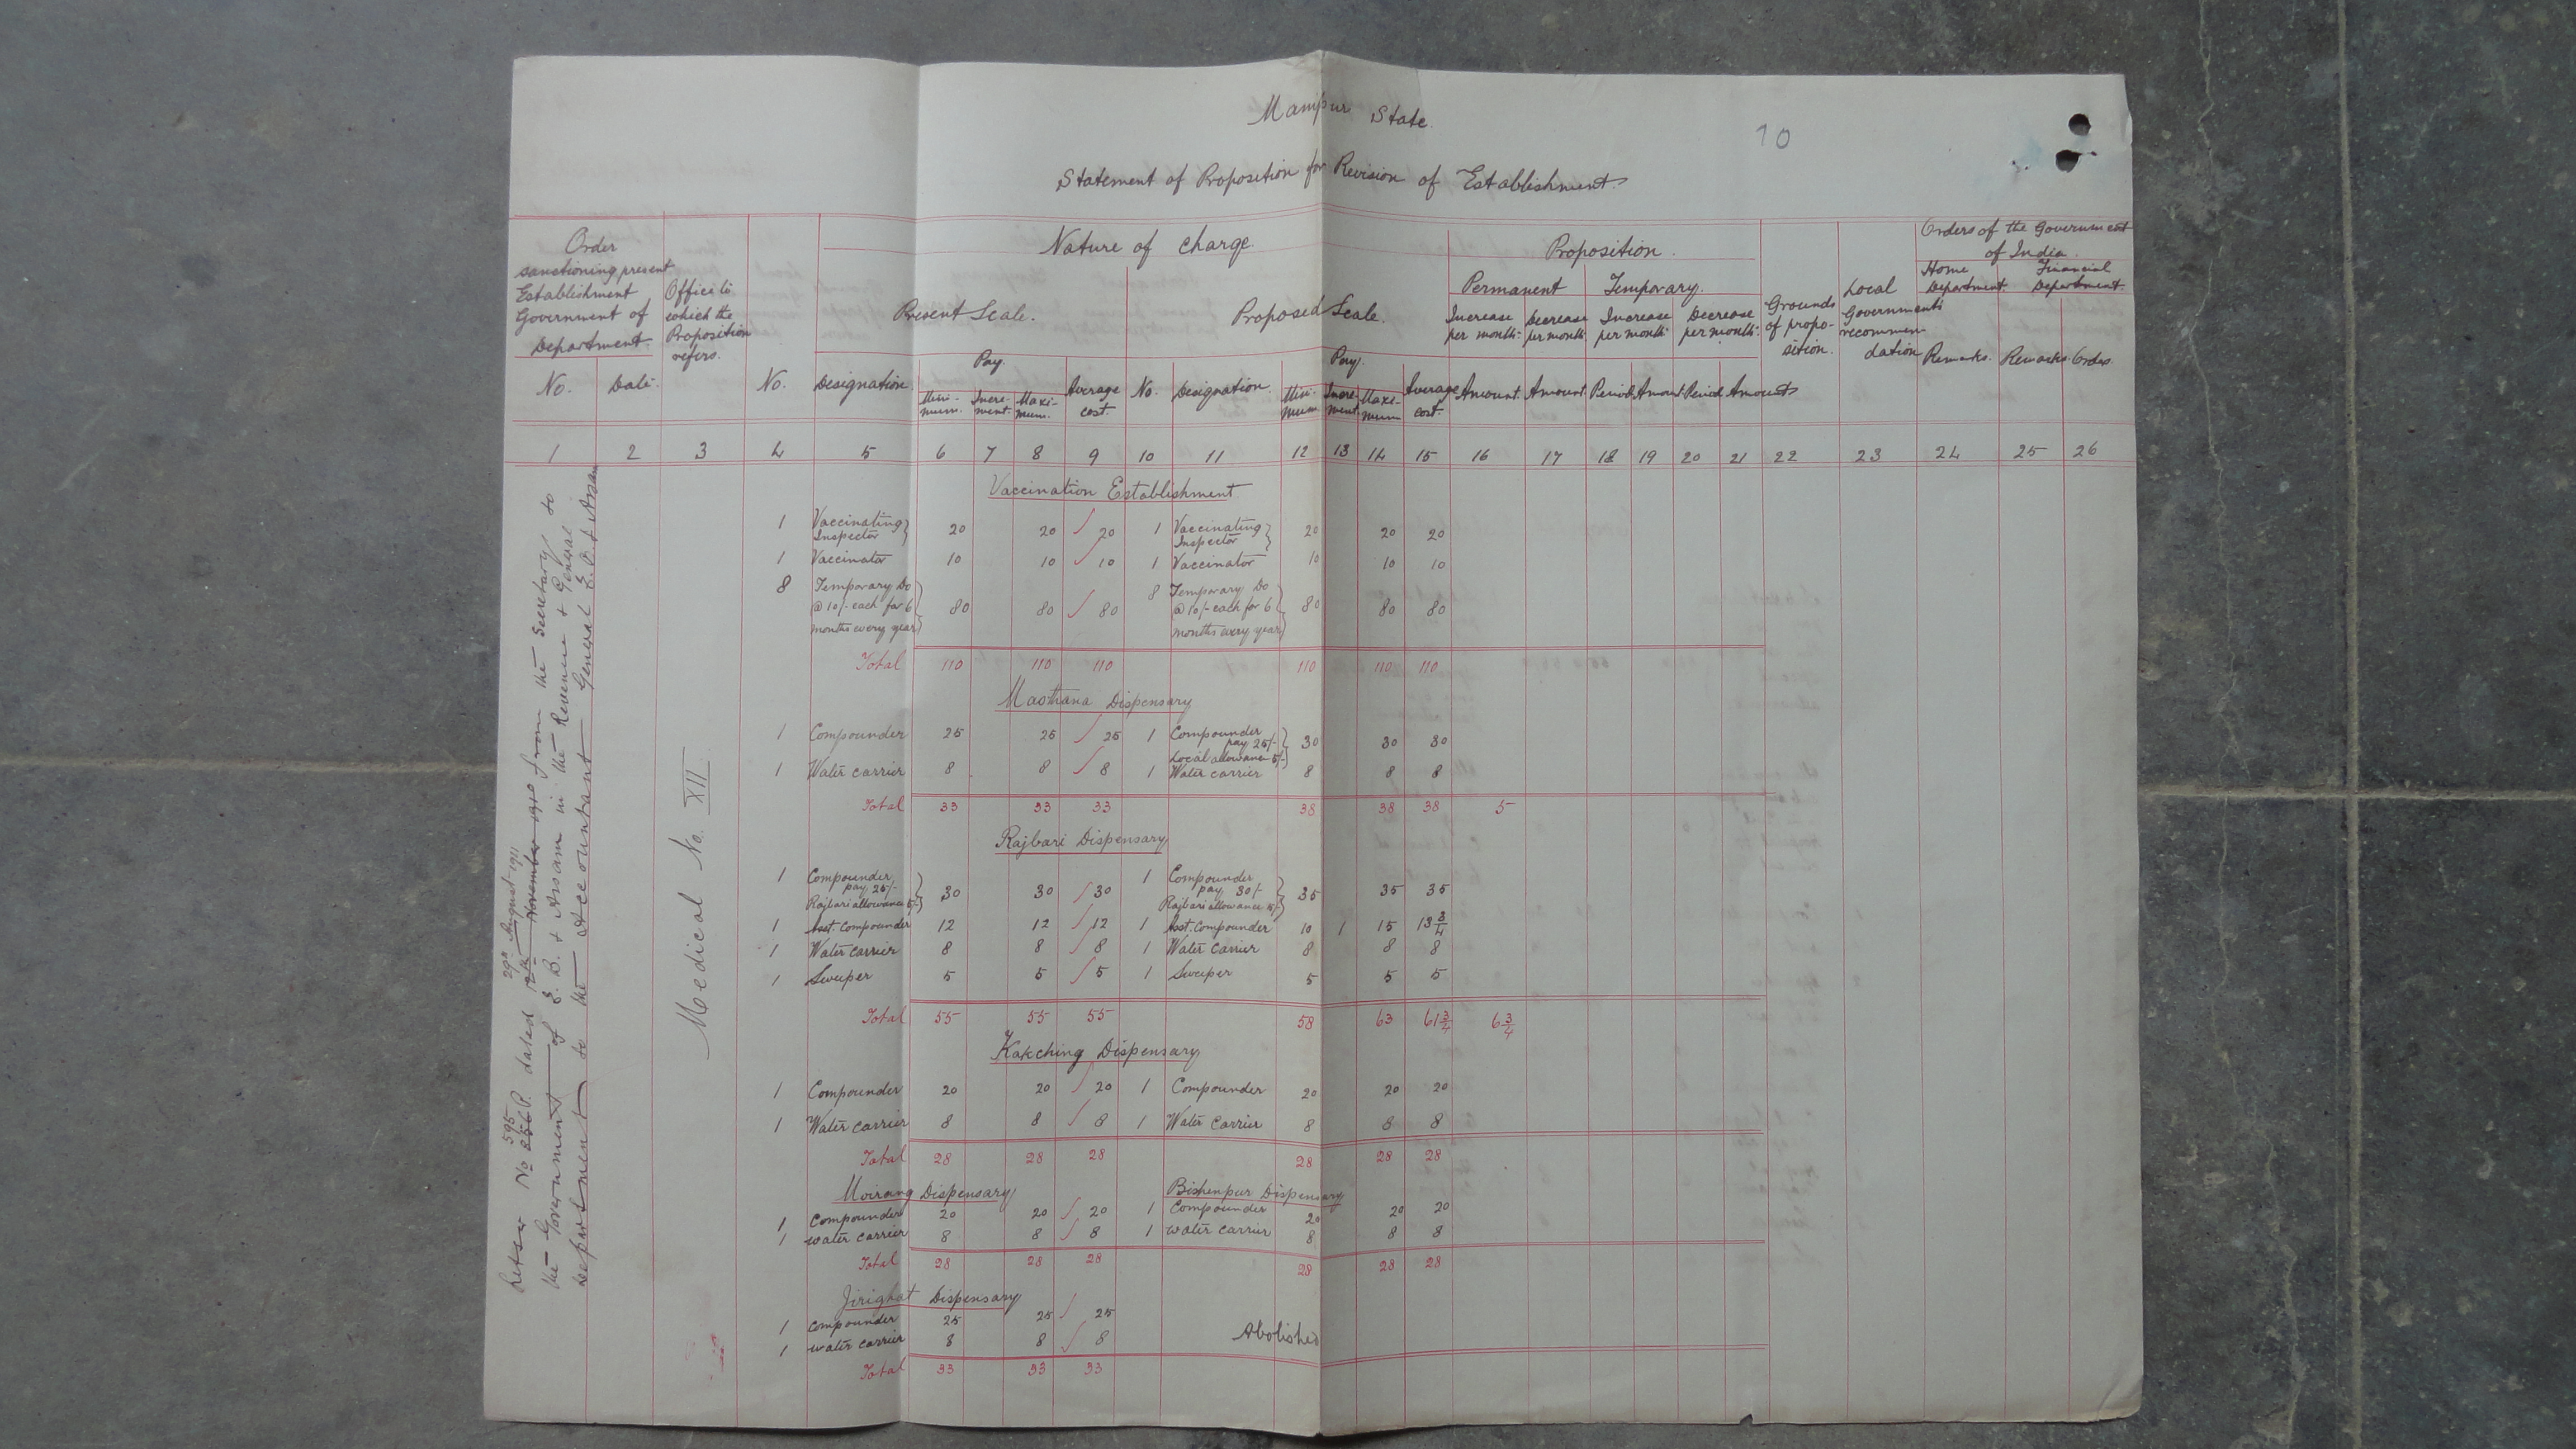 Manipur State.
10
Statement of Proposition for Revision of Establishment.
Order sanctioning present Establishment Government of Department.
Office to which the Proposition refers.
Nature of charge.
Present Scale.
Proposed Scale.
Proposition.
Permanent
Temporary.
Increase per month.
Decrease per month.
Increase per month.
Decrease per month.
Grounds of proposition.
Local Government's recommendation
Orders of the Government of India.
Home Department.
Financial Department.
No. Date. No. Designation. Pay. Minimum. Increment. Maximum. Average cost. No. Designation. Pay. Minimum. Increment. Maximum Average cost. Amount. Amount. Period. Amount. Period. Amount Remarks. Remarks. Orders
1 2 3 4 5 6 7 8 9 10 11 12 13 14 15 16 17 18 19 20 21 22 23 24 25 26
Letter No 256 P. 595 dated 12th November 1910 29th August 1911 from the Secretary to
the Government of E. B. & Assam in the Revenue & General
Department to the Accountant General E. B. & Assam
Medical No. XII
Vaccination Establishment
1 Vaccinating Inspector 20 20 20 1 Vaccinating Inspector 20 20 20
1 Vaccinator 10 10 10 1 Vaccinator 10 10 10
8 Temporary Do 8 Temporary Do
@ 10/- each for 6 80 80 80 @ 10/- each for 6 80 80 80
months every year months every year
Total 110 110 110 110 110 110
Maothana Dispensary
1 Compounder 25 25 25 1 Compounder
pay 25/- 30 30 30
Local allowance 5/-
1 Water carrier 8 8 8 1 Water carrier 8 8 8
Total 33 33 33 38 38 38 5
Rajbari Dispensary
1 Compounder 1 Compounder
pay 25/- 30 30 30 pay 30/- 35 35 35
Rajbari allowance 5/- Rajbari allowance 5/-
1 Asst. Compounder 12 12 12 1 Asst. Compounder 10 1 15 13 3/4
1 Water carrier 8 8 8 1 Water carrier 8 8 8
1 Sweeper 5 5 5 1 Sweeper 5 5 5
Total 55 55 55 58 63 61 3/4 6 3/4
Kakching Dispensary
1 Compounder 20 20 20 1 Compounder 20 20 20
1 Water carrier 8 8 8 1 Water carrier 8 8 8
Total 28 28 28 28 28 28
Moirang Dispensary Bishenpur Dispensary
1 Compounder 20 20 20 1 Compounder 20 20 20
1 water carrier 8 8 8 1 water carrier 8 8 8
Total 28 28 28 28 28 28
Jirighat Dispensary
1 compounder 25 25 25
1 water carrier 8 8 8 Abolished
Total 33 33 33